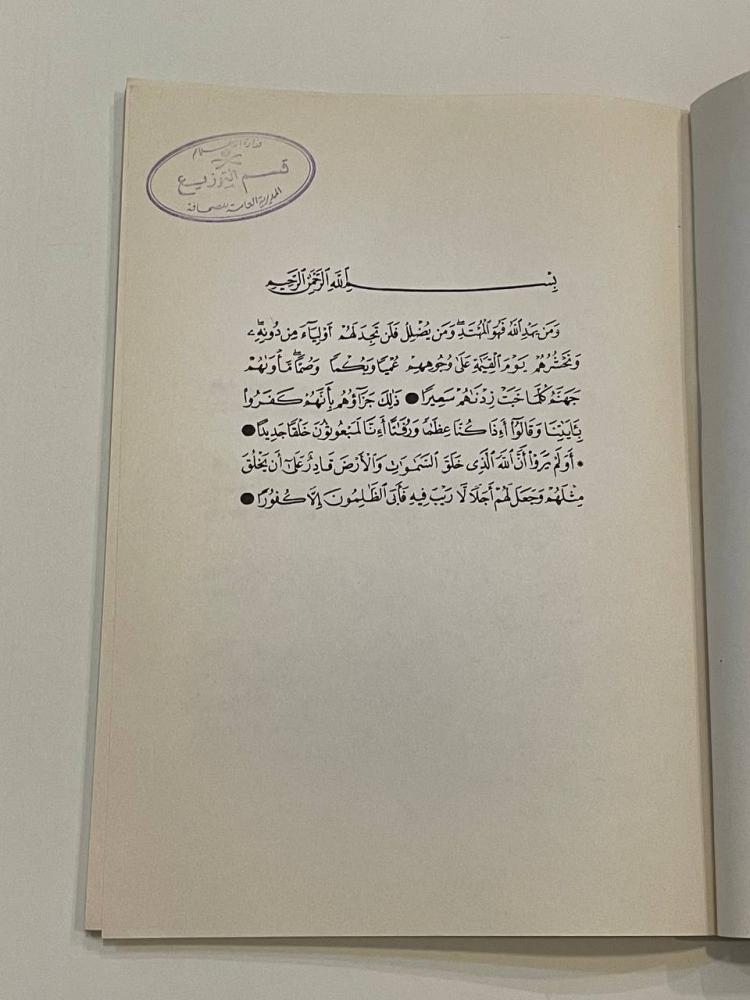 وزارة الاعلام
قسم التوزيع
المديرية العامة للصحافة
بِسْمِ ٱللَّهِ ٱلرَّحْمَٰنِ ٱلرَّحِيمِ
وَمَن يَهْدِ ٱللَّهُ فَهُوَ ٱلْمُهْتَدِ ۖ وَمَن يُضْلِلْ فَلَن تَجِدَ لَهُمْ أَوْلِيَآءَ مِن دُونِهِۦ ۖ
وَنَحْشُرُهُمْ يَوْمَ ٱلْقِيَٰمَةِ عَلَىٰ وُجُوهِهِمْ عُمْيًا وَبُكْمًا وَصُمًّا ۖ مَّأْوَىٰهُمْ
جَهَنَّمُ كُلَّمَا خَبَتْ زِدْنَٰهُمْ سَعِيرًا ● ذَٰلِكَ جَزَآؤُهُم بِأَنَّهُمْ كَفَرُوا۟
بِـَٔايَٰتِنَا وَقَالُوٓا۟ أَءِذَا كُنَّا عِظَٰمًا وَرُفَٰتًا أَءِنَّا لَمَبْعُوثُونَ خَلْقًا جَدِيدًا ●
• أَوَلَمْ يَرَوْا۟ أَنَّ ٱللَّهَ ٱلَّذِى خَلَقَ ٱلسَّمَٰوَٰتِ وَٱلْأَرْضَ قَادِرٌ عَلَىٰٓ أَن يَخْلُقَ
مِثْلَهُمْ وَجَعَلَ لَهُمْ أَجَلًا لَّا رَيْبَ فِيهِ فَأَبَى ٱلظَّٰلِمُونَ إِلَّا كُفُورًا ●